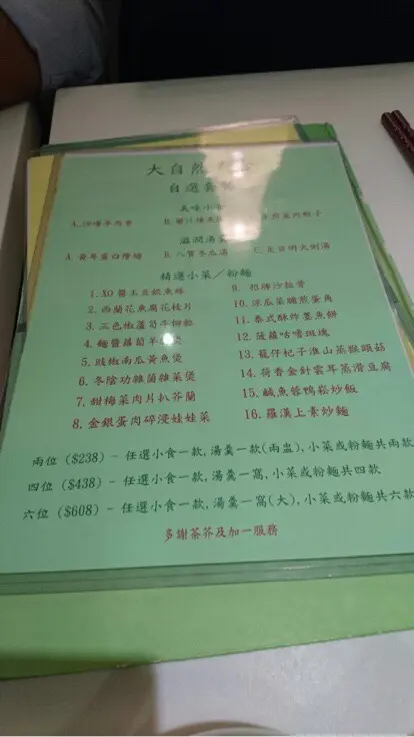 大自然
自選套餐
美味小食
A.沙嗲串燒 B.
滋潤湯羹
A. B.八寶冬瓜湯 C.
精選小菜／粉麵
1. XO醬玉豆銀魚絲
2. 西蘭花魚腐花枝片
3. 三色椒蘆筍牛柳粒
4.
5. 豉椒南瓜黃魚煲
6. 冬陰功雜菌雜菜煲
7. 甜梅菜肉片扒芥蘭
8. 金銀蛋肉碎浸娃娃菜
9. 招牌沙拉骨
10. 涼瓜菜脯煎蛋角
11. 泰式酥炸墨魚餅
12. 菠蘿咕嚕斑塊
13. 籠仔杞子淮山蒸猴頭菇
14. 荷香金針雲耳蒸滑豆腐
15. 鹹魚蓉鴨崧炒飯
16. 羅漢上素炒麵
兩位 ($238) - 任選小食一款,湯羹一款(兩盅),小菜或粉麵共兩款
四位 ($438) - 任選小食一款,湯羹一窩,小菜或粉麵共四款
六位 ($608) - 任選小食一款,湯羹一窩(大),小菜或粉麵共六款
多謝茶芥及加一服務